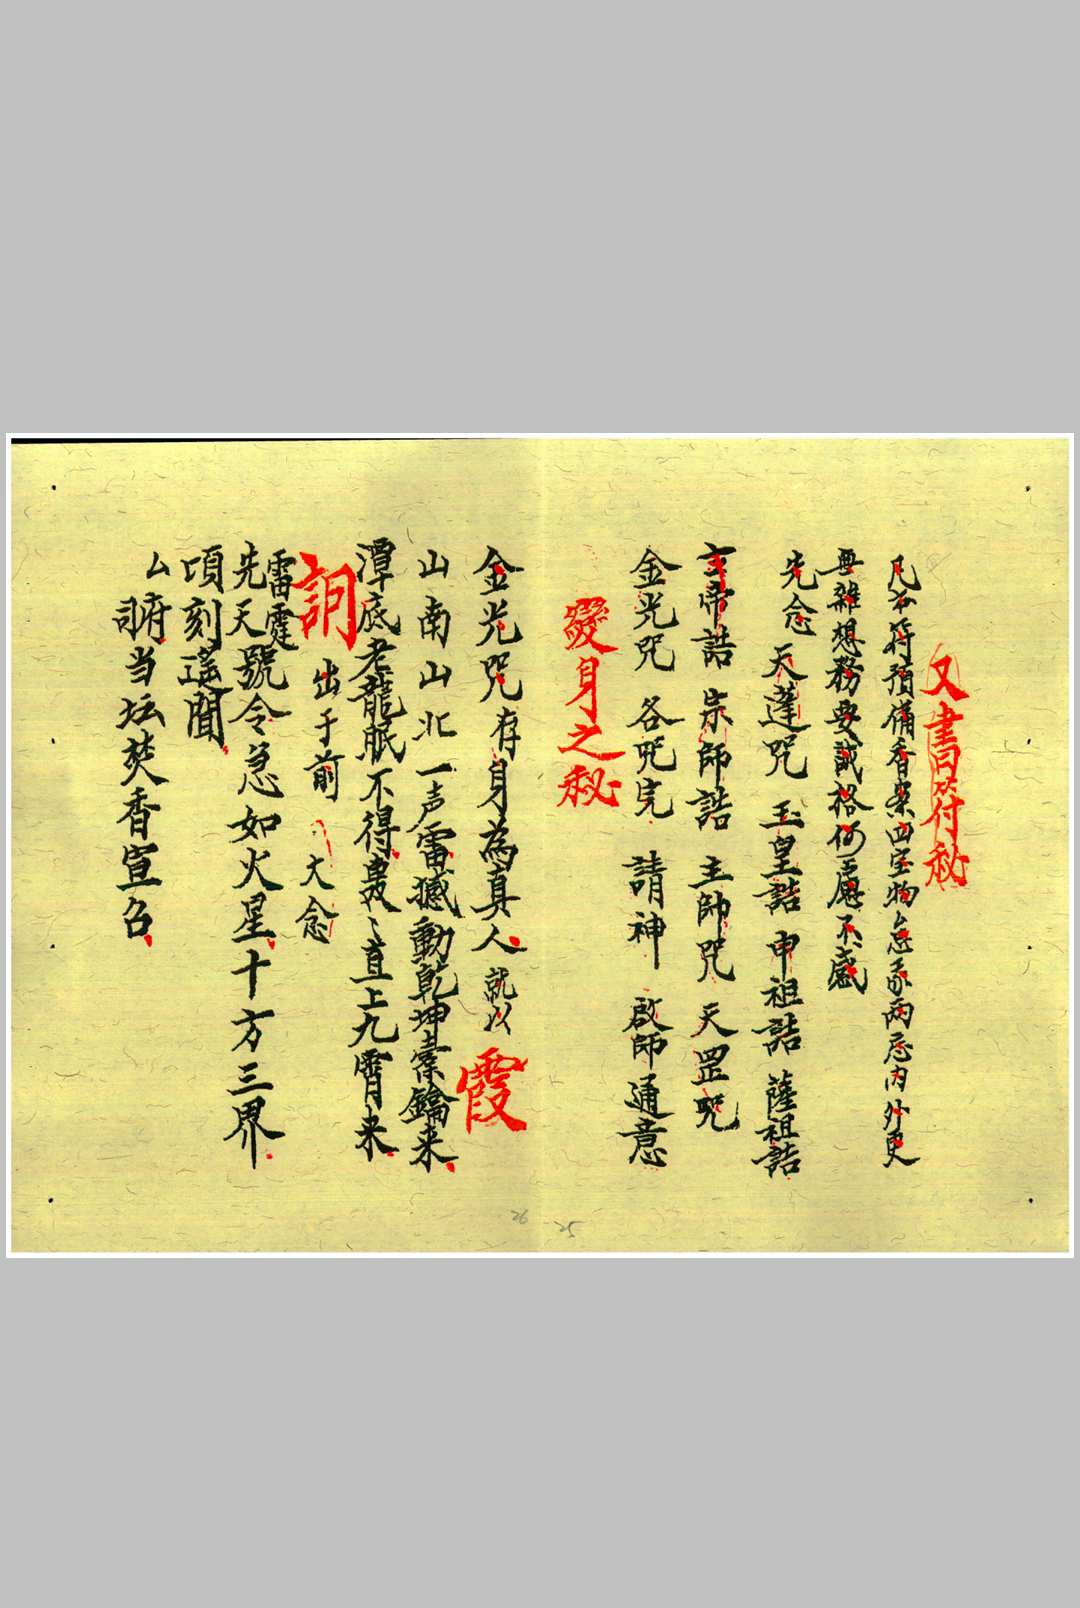 又書符秘
凡書符預備香案四宝物急承两唇内外更
毋雜想務要誠格何慮不感
先念 天蓬咒 玉皇誥 申祖誥 薩祖誥
玄帝誥 宗師誥 主帥咒 天罡咒
金光咒 各咒完 請神 啟師通意
變身之秘
金光咒 存身為真人 就以 霞
山南山北一声雷撼動乾坤橐鑰来
潭底老龍眠不得轟〻直上九霄来
訶 出于前 大念
雷霆
先天號令急如火星十方三界
頃刻遥聞
厶 嗣 当坛焚香宣召
26 25